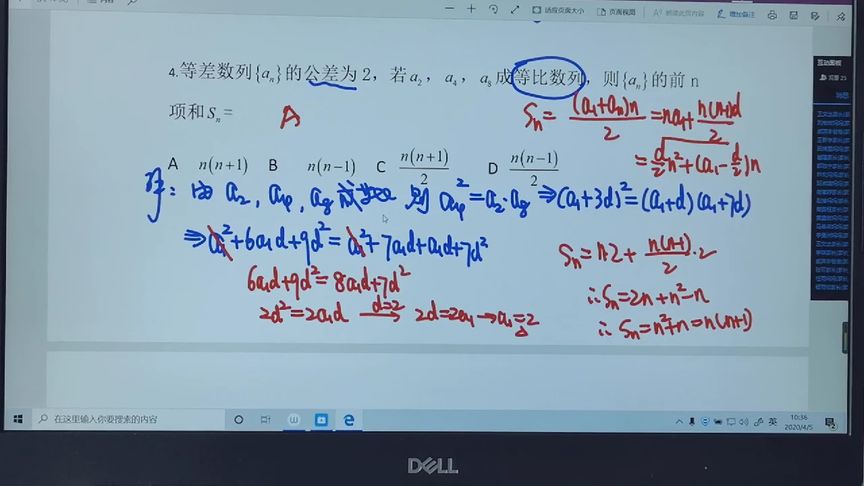 适应页面大小 页面视图 朗读此页内容 增加备注
4.等差数列{aₙ}的公差为2，若a₂，a₄，a₈成等比数列，则{aₙ}的前n
项和Sₙ= A
Sₙ=(a₁+aₙ)n/2=na₁+n(n-1)d/2
=d/2n²+(a₁-d/2)n
A n(n+1) B n(n-1) C n(n+1)/2 D n(n-1)/2
由a₂, a₄, a₈成 则a₄²=a₂·a₈⇒(a₁+3d)²=(a₁+d)(a₁+7d)
⇒a₁²+6a₁d+9d²=a₁²+7a₁d+a₁d+7d²
6a₁d+9d²=8a₁d+7d²
2d²=2a₁d d=2→ 2d=2a₁→a₁=2
Sₙ=n·2+n(n-1)/2·2
∴Sₙ=2n+n²-n
∴Sₙ=n²+n=n(n+1)
互动面板
在这里输入你要搜索的内容
英 10:36
2020/4/5
DELL